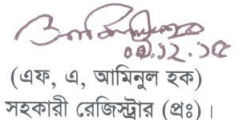 ০৯.১২.১৫
(এফ, এ, আমিনুল হক)
সহকারী রেজিস্ট্রার (প্রঃ)।